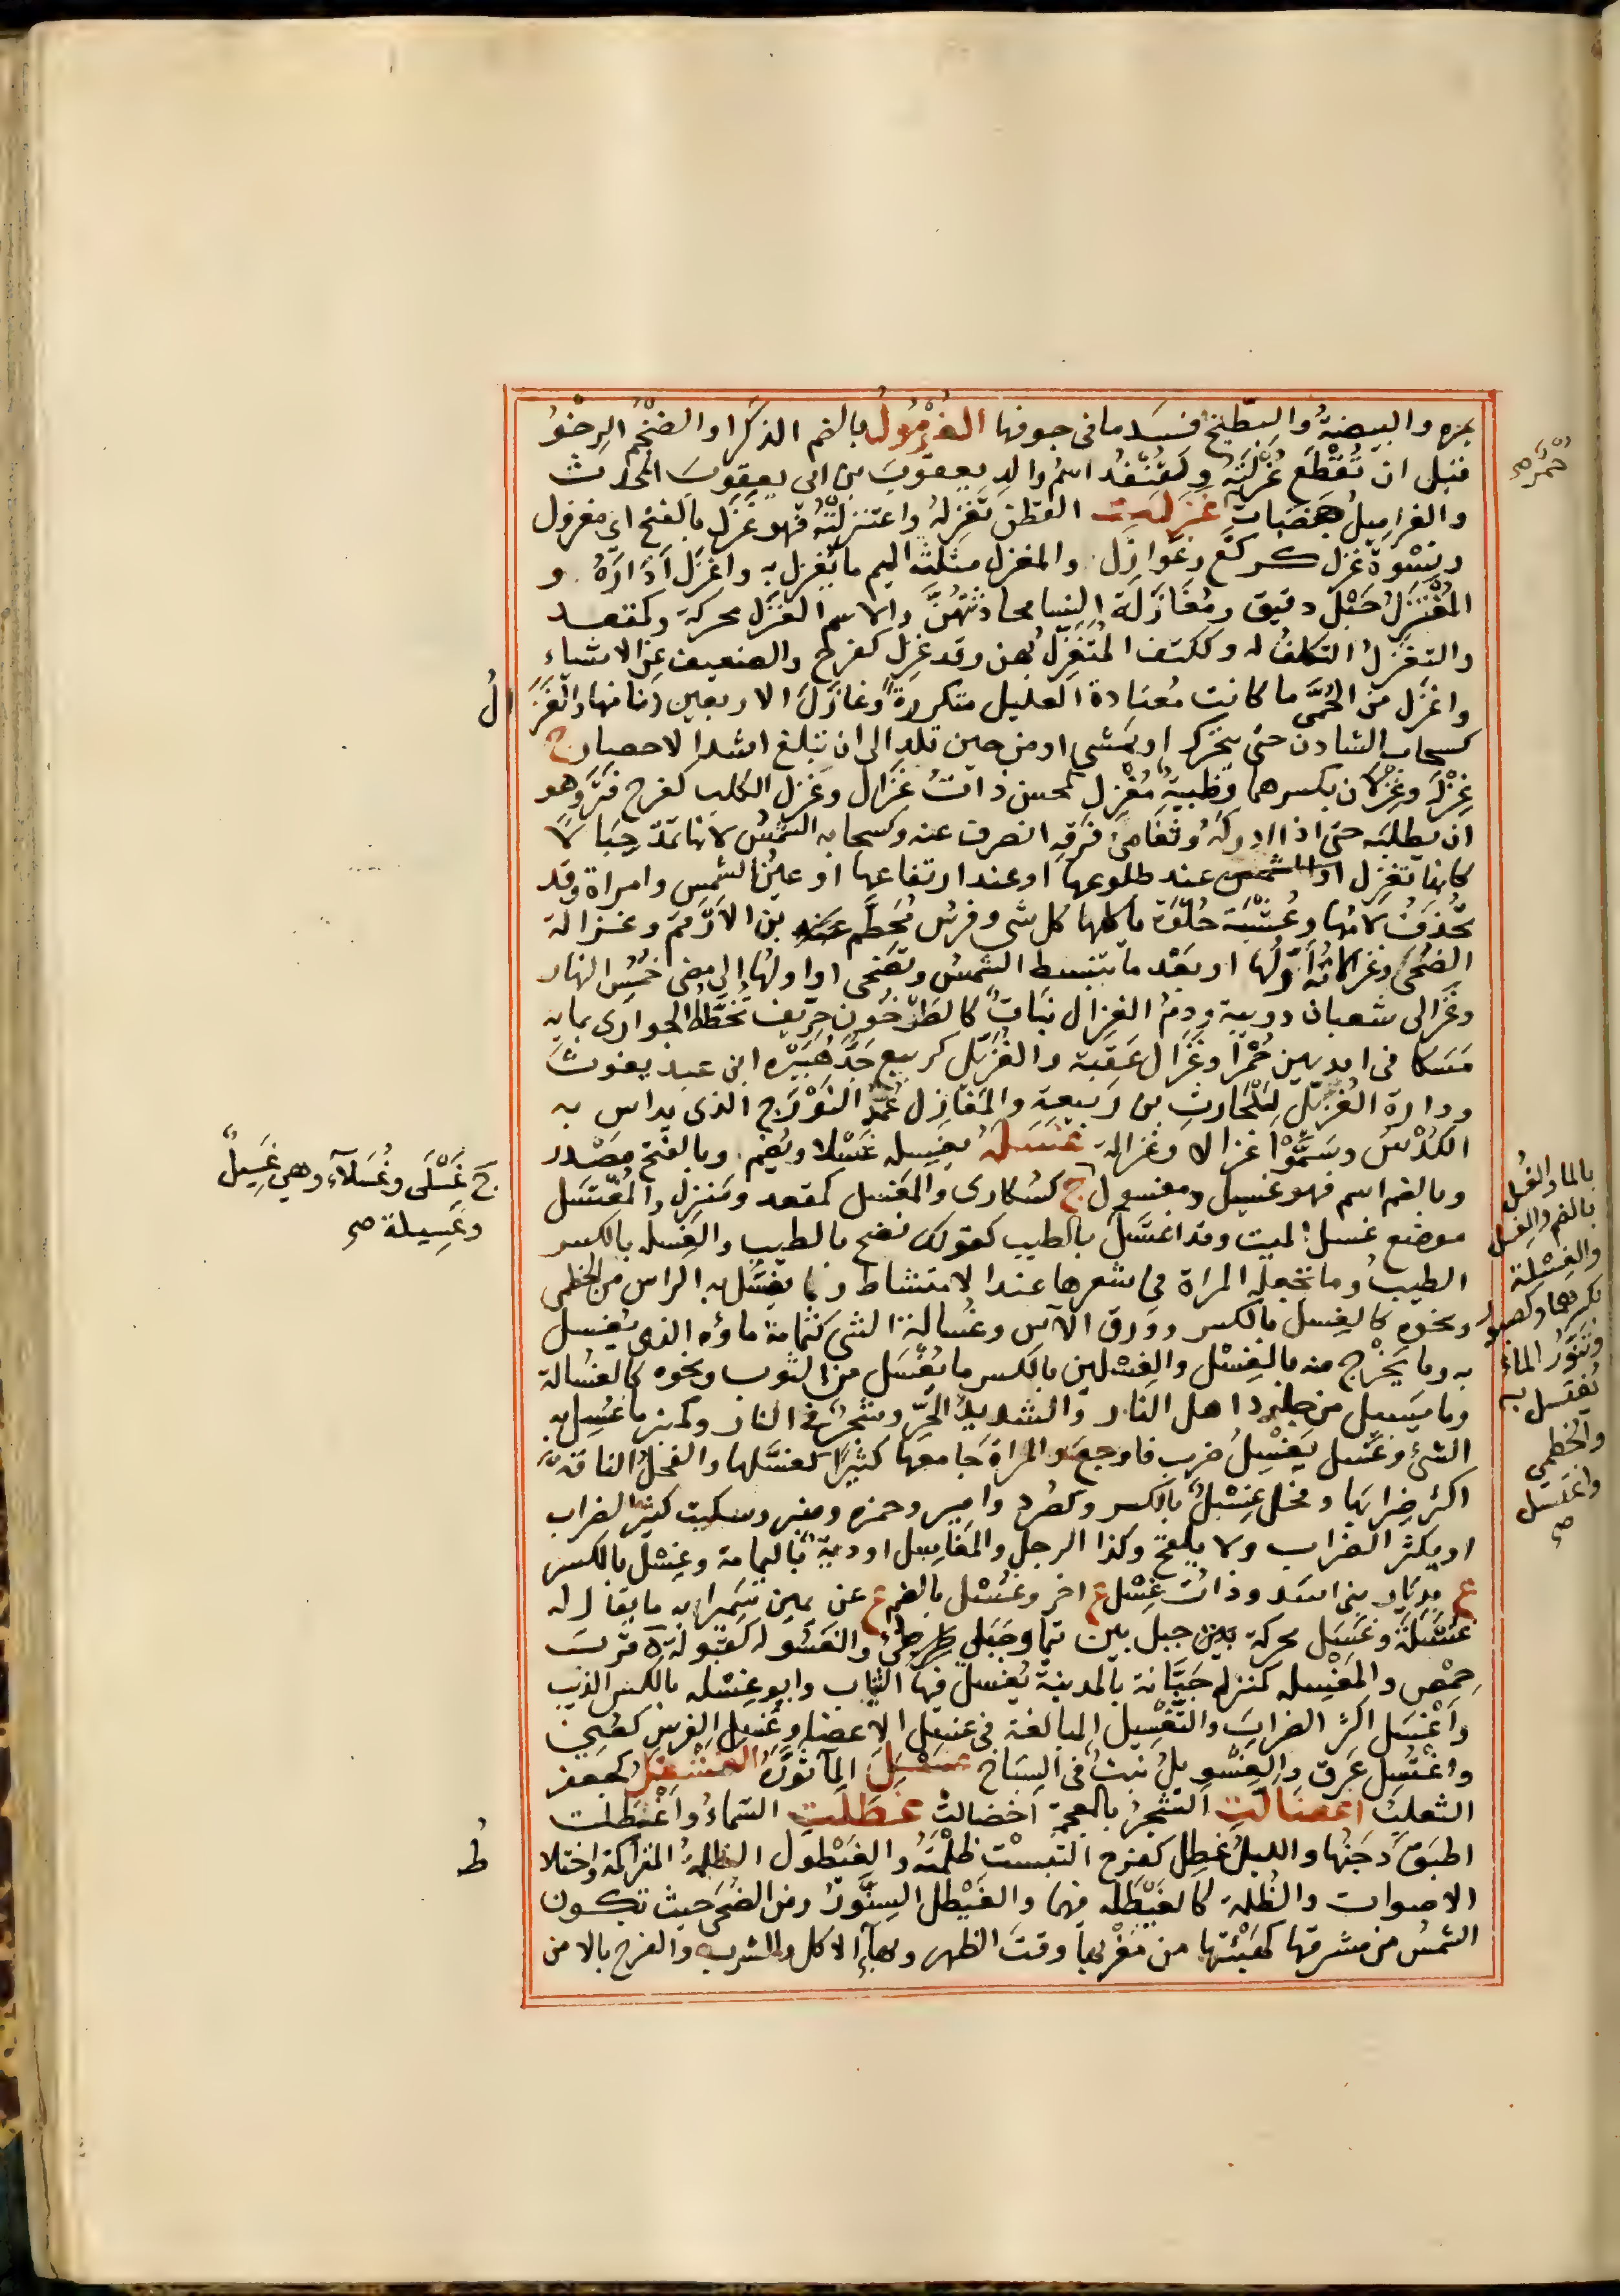 بمره والبيضةُ والبطيخ فسَد ما فى جوفها الغُرْمُولُ بالضم الذكَر او الضخْم الرِخْوُ
قبل ان تُقْطَع غُرْلَتُه وكقُنْفُد اسم والدِ يعقوبَ بن ابى يعقوبَ المحدث
والغراميلُ هضبات غزلَت القطن تَغزِلهُ واغتزلَتْهُ فهو غَزْل بالفتح اى مغزول
ونِسْوة غُزل كركّع وغَوازل والمغزل مثلثة الميم ما يُغزل به واغزل اَدَارَهُ و
المُغْتَزلُ حَبْل دقيق ومُغَازَلَة النسا محادثتهُنَّ والاسم الغزَل محركة وكمقعد
والتغزّلُ التكلفُ له وككتف المتغزّل بهن وقد غزِل كفرح والضعيف عن الاشياءِ
واغزَل من الحُمَّى ما كانت مُعتادة العليل متكررةً وغازَلَ الاربعين دنا منها والغَزَ
كسحاب الشادن حتى يتحرّك او يمشى او من حين تلد الى ان تبلغ اشد الاحصار ج
غِزْلَة وغِزْلان بكسرهما وظبيةٌ مُغْزِل كمحسن ذاتُ غَزَال وغَزِل الكلب كفرح فتَر وهو
ان يطلبَه حتى اذا ادركه وثَغا من فَرَقِه انصرف عنه وكسحابه الشمسُ لانها تمدّ حِبَالًا
كانها تَغزِل او الشمس عند طلوعها او عند ارتفاعها او عينُ الشمس وامراة وقد
تُحْذَفُ لامُها وعُشْبَة حُلوَة ياكلها كل شى وفرس مُحَطِّم بن الارقم وغزالة
الضُحَى وغزالاته اَوّلُها او بعْد ما تنبسط الشمسُ وتضحى او اولها الى مضى خُمُسِ النهار
وغَزالى شعبان دويبة ودم الغزال نبَات كالطَرْخُون حِرّيف تُخَطّط الجوارى بمايه
مَسَكا فى ايديهن حُمْرًا وغَزَال عقَبة والغُزَيّل كربيع جَدّ هُبَيْرَه ابن عبد يغوث
ودارة الغُزَيّل لبَلْحَارث بن ربيعة والمغازل عُمُد النَوْرَج الذى يداس به
الكُدْسُ وسَمَّوْا غزالا وغزالة غسَلهُ يغسِله غَسْلا ويُضم وبالفتح مصْدر
وبالضم اسم فهو غسيل ومغسول ج كسُكارى والمَغسل كمقعد ومنزل والمُغتسَل
موضع غسل الميت وقد اغتسَلَ بالطيب كقولك نضح بالطيب والغِسله بالكسر
الطيبُ وما تجعله المراة فى شعرها عند الامتشاط وما يُغسَل به الراس من الخطمى
ونحوه كالغِسل بالكسر وورق الآس وغُسالة الشى كثمامة ماؤه الذى يُغسل
به وما يَخْرُج منه بالغَسْل والغِسْلين بالكسر ما يُغْسَل من الثوب ونحوه كالغسُالة
وما يَسيل من جلود اهل النار والشديدُ الحرّ وشجرٌ فى النار وكمنبر ما غُسِل به
الشئ وغَسَل يَغسِلُ ضرب فاوجع والمراة جامعها كثيرًا كغسَّلها والفحلُ الناقةَ
اكثر ضِرابها وفحل غِسْلٌ بالكسر وكصُرد وامير وحمزه ومنبر وسكيت كثير الضراب
او يكثر الضراب ولا يلقح وكذا الرجل والمغاسل اودية باليمامة وغِسْل بالكسر
ع بديار بنى اسد وذات غِسْل ع اخر وغُسْل بالضم ع عن يمين سَمِيراء به ما يقال له
غسْلَة وغسَل محركة جبل بين تيما وجَبَلى طئ والغسُولة كقبُولة ة قربَ
حِمْص والمَغْسِله كمنزله جَبَّانة بالمدينة يُغسل فيها الثياب وابو غِسْله بالكسر الذيب
وأغْسَل اكثر الضرابَ والتَغْسِيل المبالغة فى غسل الاعضا وغُسِل الفرس كعُنِىَ
واغْتُسِل عَرق والغِسْوِيلُ نبتٌ فى السباخ غسْبَلَ المآ ثوَّرَهُ الغَشْفَلُ كجعفر
الثعلبُ اغضالّتِ الشجرُ بالعجمه اخضالت غطَلَتِ السّماءُ واغْطَلت
اطبَقَ دَجَنُها والليلُ غطِل كفرح التبسَتْ ظُلْمَتُه والغَيْطول الظلمةُ المتراكمة واختلا
الاصوات والظُلمة كالغَيْطَله فيهما والغَيْطل السِنَّوْرُ ومن الضُحَى حيث تكون
الشمسُ من مشرقها كهَيْئتها من مَغْرِبها وقتَ الظهر وبهآءٍ الاكل والشرب والفرح بالامن
الُ
ج غَسْلَى وغُسَلآء وهي غَسِيلٌ
وغَسِيلة صح
بالما والغُسل
بالضم والغسل
والغِسْلة
بكسرهما وكصبور
وتنّور الماءُ
يُغتسل به
والخطمي
واغتسل
صح
طُ